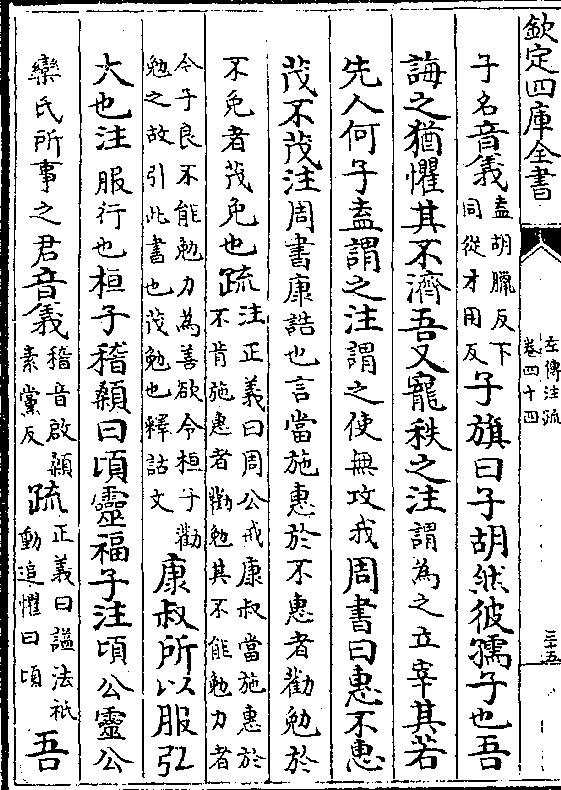 欽定四庫全書
左傳注疏
卷四十四
三十五
子名音義盍胡臘反下同從才用反子旗曰子胡然彼孺子也吾
誨之猶懼其不濟吾又寵秩之注謂為之立宰其若
先人何子盍謂之注謂之使無攻我周書曰惠不惠
茂不茂注周書康誥也言當施惠於不惠者勸勉於
不免者茂免也疏注正義曰周公戒康叔當施惠於不肯施惠者勸勉其不能勉力者
令子良不能勉力為善欲令桓子勸勉之故引此書也茂勉也釋詁文康叔所以服弘
大也注服行也桓子稽顙曰頃靈福子注頃公靈公
欒氏所事之君音義稽音啟顙素黨反疏正義曰謚法祇動追懼曰頃吾